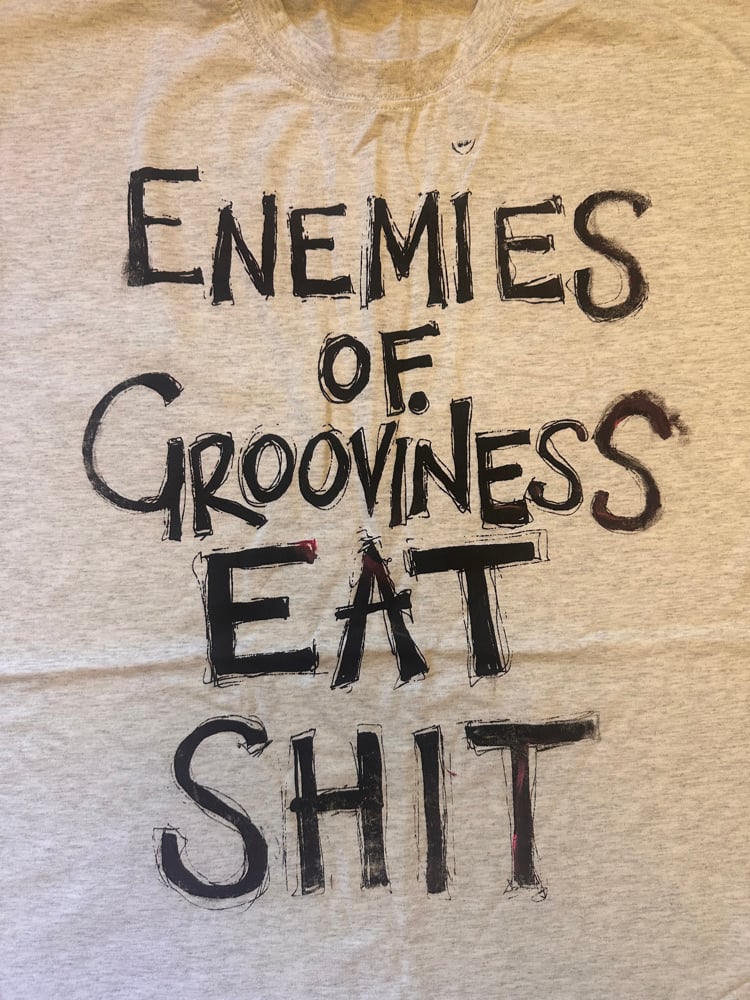 ENEMIES
OF.
GROOVINESS
EAT
SHIT